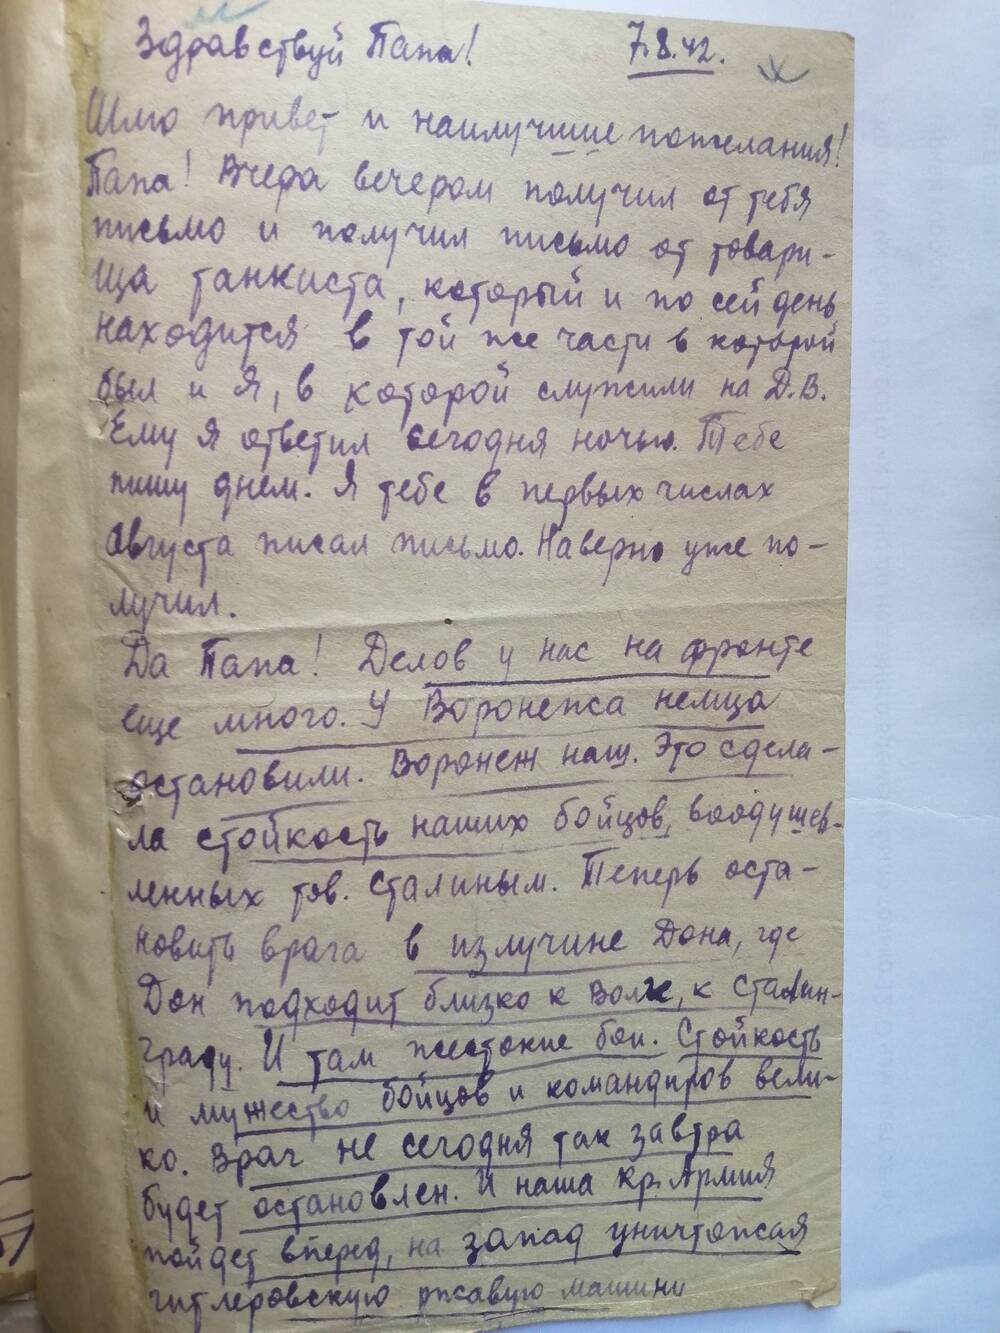 Здравствуй Папа! 7.8.42.
Шлю привет и наилучшие пожелания!
Папа! Вчера вечером получил от тебя
письмо и получил письмо от товари-
ща танкиста, который и по сей день
находится в той же части в которой
был и я, в которой служили на Д.В.
Ему я ответил сегодня ночью. Тебе
пишу днем. Я тебе в первых числах
августа писал письмо. Наверно уже по-
лучил.
Да Папа! Делов у нас на фронте
еще много. У Воронежа немца
остановили. Воронеж наш. Это сдела-
ла стойкость наших бойцов, воодушев-
ленных тов. Сталиным. Теперь оста-
новить врага в излучине Дона, где
Дон подходит близко к Волге, к Сталин-
граду. И там жестокие бои. Стойкость
и мужество бойцов и командиров вели-
ко. Враг не сегодня так завтра
будет остановлен. И наша Кр. Армия
пойдет вперед, на запад уничтожая
гитлеровскую ржавую машину